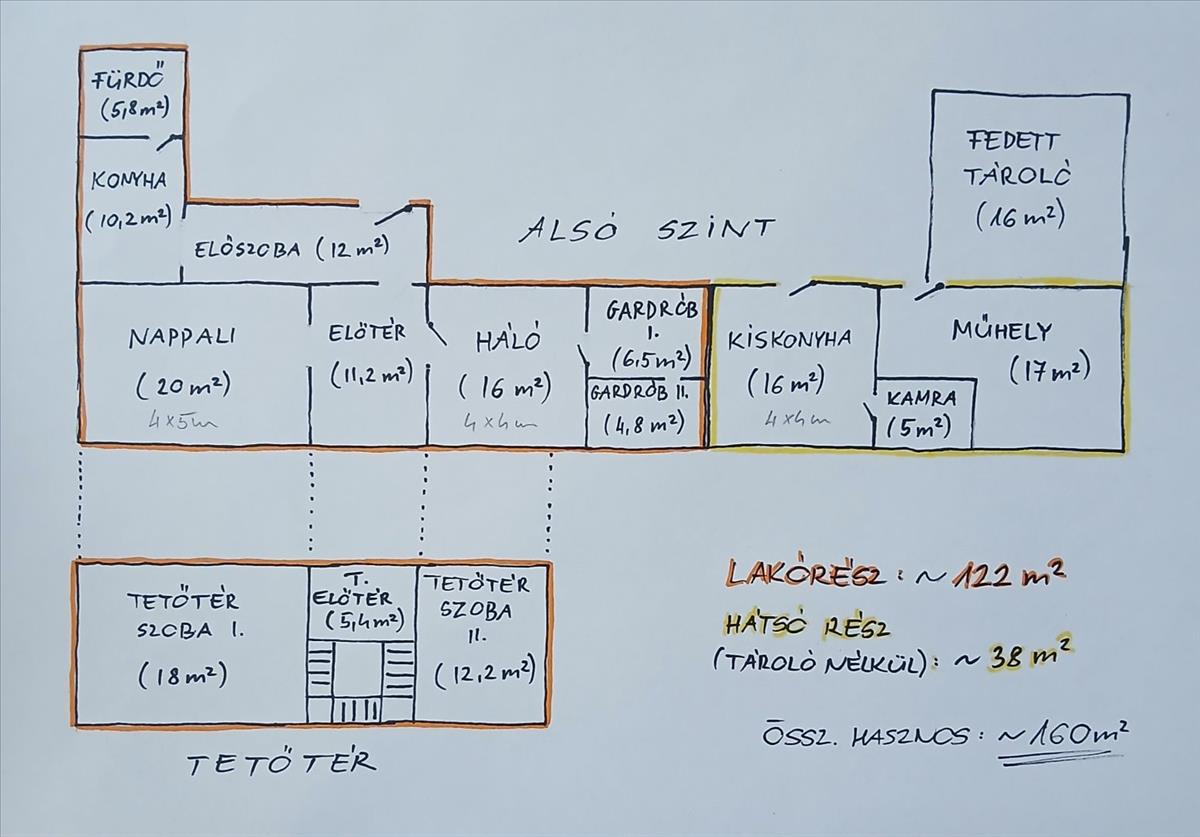 FÜRDŐ
(5,8 m²)
KONYHA
(10,2 m²)
ELŐSZOBA (12 m²)
ALSÓ SZINT
FEDETT
TÁROLÓ
(16 m²)
NAPPALI
(20 m²)
4 x 5 m
ELŐTÉR
(11,2 m²)
HÁLÓ
(16 m²)
4 x 4 m
GARDRÓB
I.
(6,5 m²)
GARDRÓB II.
(4,8 m²)
KISKONYHA
(16 m²)
4 x 4 m
MŰHELY
(17 m²)
KAMRA
(5 m²)
TETŐTÉR
SZOBA I.
(18 m²)
T.
ELŐTÉR
(5,4 m²)
TETŐTÉR
SZOBA
II.
(12,2 m²)
TETŐTÉR
LAKÓRÉSZ: ~ 122 m²
HÁTSÓ RÉSZ
(TÁROLÓ NÉLKÜL): ~ 38 m²
ÖSSZ. HASZNOS: ~ 160 m²